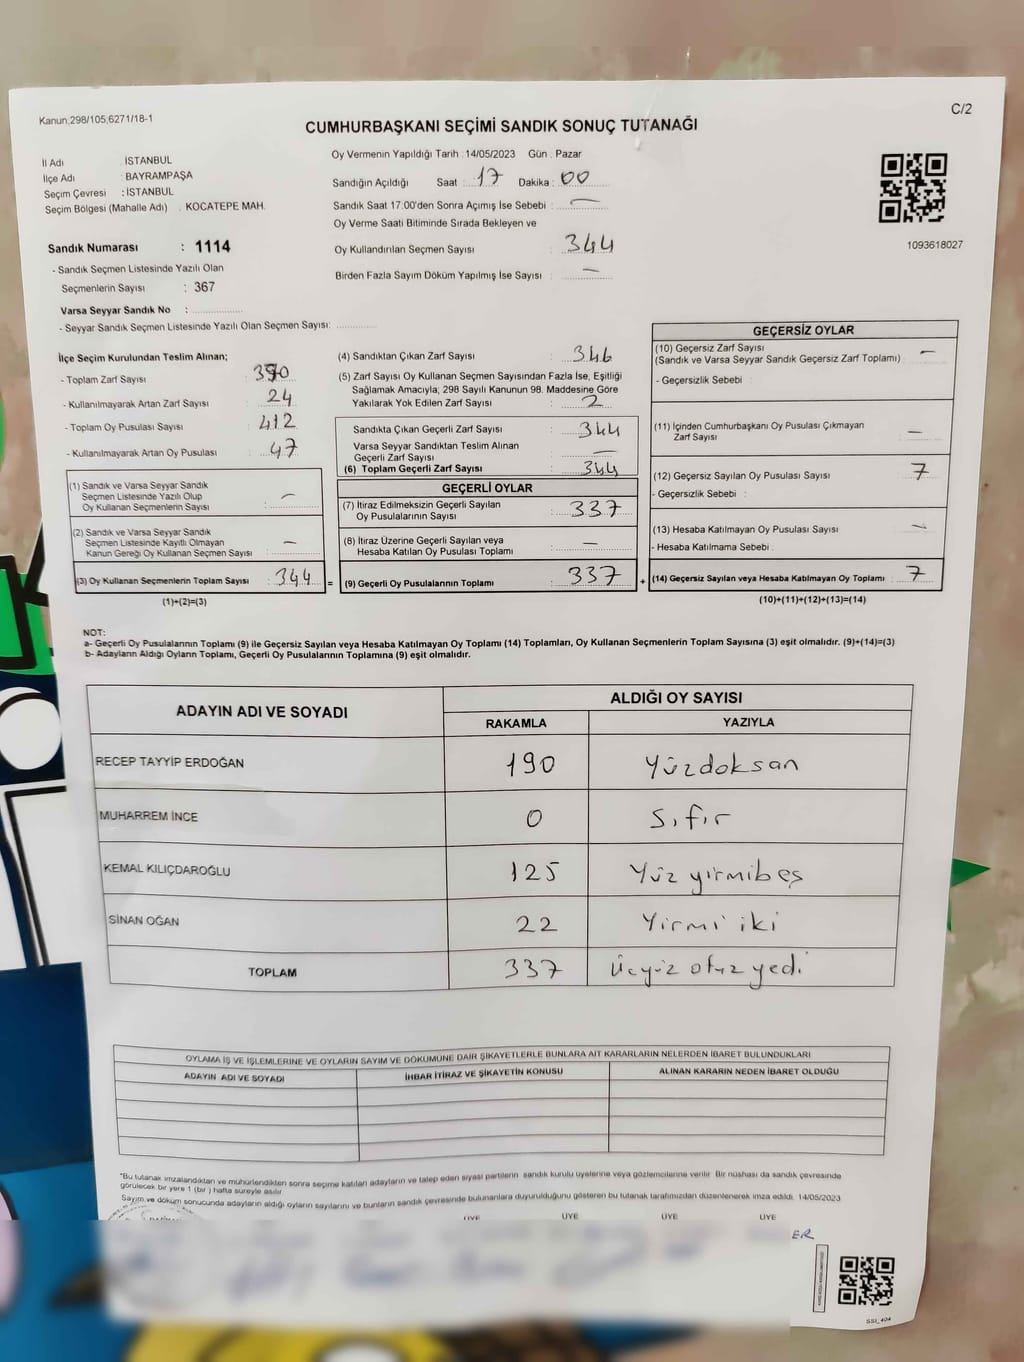 Kanun;298/105,6271/18-1
C/2
CUMHURBAŞKANI SEÇİMİ SANDIK SONUÇ TUTANAĞI
İl Adı : İSTANBUL
İlçe Adı : BAYRAMPAŞA
Seçim Çevresi : İSTANBUL
Seçim Bölgesi (Mahalle Adı) : KOCATEPE MAH.
Sandık Numarası : 1114
- Sandık Seçmen Listesinde Yazılı Olan
Seçmenlerin Sayısı : 367
Varsa Seyyar Sandık No :
- Seyyar Sandık Seçmen Listesinde Yazılı Olan Seçmen Sayısı:
Oy Vermenin Yapıldığı Tarih : 14/05/2023 Gün : Pazar
Sandığın Açıldığı Saat : 17 Dakika : 00
Sandık Saat 17:00'den Sonra Açımış İse Sebebi : —
Oy Verme Saati Bitiminde Sırada Bekleyen ve
Oy Kullandırılan Seçmen Sayısı : 344
Birden Fazla Sayım Döküm Yapılmış İse Sayısı : —
1093618027
İlçe Seçim Kurulundan Teslim Alınan;
- Toplam Zarf Sayısı : 390
- Kullanılmayarak Artan Zarf Sayısı : 24
- Toplam Oy Pusulası Sayısı : 412
- Kullanılmayarak Artan Oy Pusulası : 47
(1) Sandık ve Varsa Seyyar Sandık
Seçmen Listesinde Yazılı Olup
Oy Kullanan Seçmenlerin Sayısı : —
(2) Sandık ve Varsa Seyyar Sandık
Seçmen Listesinde Kayıtlı Olmayan
Kanun Gereği Oy Kullanan Seçmen Sayısı : —
(3) Oy Kullanan Seçmenlerin Toplam Sayısı : 344 =
(1)+(2)=(3)
(4) Sandıktan Çıkan Zarf Sayısı : 346
(5) Zarf Sayısı Oy Kullanan Seçmen Sayısından Fazla İse, Eşitliği
Sağlamak Amacıyla; 298 Sayılı Kanunun 98. Maddesine Göre
Yakılarak Yok Edilen Zarf Sayısı : 2
Sandıkta Çıkan Geçerli Zarf Sayısı : 344
Varsa Seyyar Sandıktan Teslim Alınan
Geçerli Zarf Sayısı : —
(6) Toplam Geçerli Zarf Sayısı : 344
GEÇERLİ OYLAR
(7) İtiraz Edilmeksizin Geçerli Sayılan
Oy Pusulalarının Sayısı : 337
(8) İtiraz Üzerine Geçerli Sayılan veya
Hesaba Katılan Oy Pusulası Toplamı : —
(9) Geçerli Oy Pusulalarının Toplamı : 337 +
GEÇERSİZ OYLAR
(10) Geçersiz Zarf Sayısı
(Sandık ve Varsa Seyyar Sandık Geçersiz Zarf Toplamı) : —
- Geçersizlik Sebebi :
(11) İçinden Cumhurbaşkanı Oy Pusulası Çıkmayan
Zarf Sayısı : —
(12) Geçersiz Sayılan Oy Pusulası Sayısı : 7
- Geçersizlik Sebebi :
(13) Hesaba Katılmayan Oy Pusulası Sayısı : —
- Hesaba Katılmama Sebebi :
(14) Geçersiz Sayılan veya Hesaba Katılmayan Oy Toplamı : 7
(10)+(11)+(12)+(13)=(14)
NOT:
a- Geçerli Oy Pusulalarının Toplamı (9) ile Geçersiz Sayılan veya Hesaba Katılmayan Oy Toplamı (14) Toplamları, Oy Kullanan Seçmenlerin Toplam Sayısına (3) eşit olmalıdır. (9)+(14)=(3)
b- Adayların Aldığı Oyların Toplamı, Geçerli Oy Pusulalarının Toplamına (9) eşit olmalıdır.
ADAYIN ADI VE SOYADI
ALDIĞI OY SAYISI
RAKAMLA YAZIYLA
RECEP TAYYİP ERDOĞAN 190 Yüzdoksan
MUHARREM İNCE 0 Sıfır
KEMAL KILIÇDAROĞLU 125 Yüz yirmibeş
SİNAN OĞAN 22 Yirmi iki
TOPLAM 337 Üçyüz otuz yedi
OYLAMA İŞ VE İŞLEMLERİNE VE OYLARIN SAYIM VE DÖKÜMÜNE DAİR ŞİKAYETLERLE BUNLARA AİT KARARLARIN NELERDEN İBARET BULUNDUKLARI
ADAYIN ADI VE SOYADI İHBAR İTİRAZ VE ŞİKAYETİN KONUSU ALINAN KARARIN NEDEN İBARET OLDUĞU
*Bu tutanak imzalandıktan ve mühürlendikten sonra seçime katılan adayların ve talep eden siyasi partilerin sandık kurulu üyelerine veya gözlemcilerine verilir. Bir nüshası da sandık çevresinde
görülecek bir yere 1 (bir) hafta süreyle asılır.
Sayım ve döküm sonucunda adayların aldığı oyların sayılarını ve bunların sandık çevresinde bulunanlara duyurulduğunu gösteren bu tutanak tarafımızdan düzenlenerek imza edildi. 14/05/2023
ÜYE ÜYE ÜYE ÜYE
ER
SSI_404